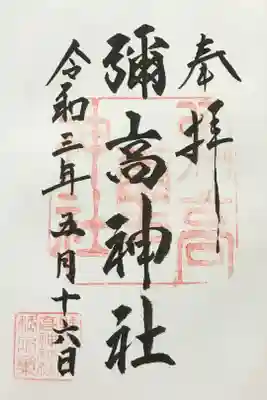 奉拝
彌高神社
令和三年五月十六日